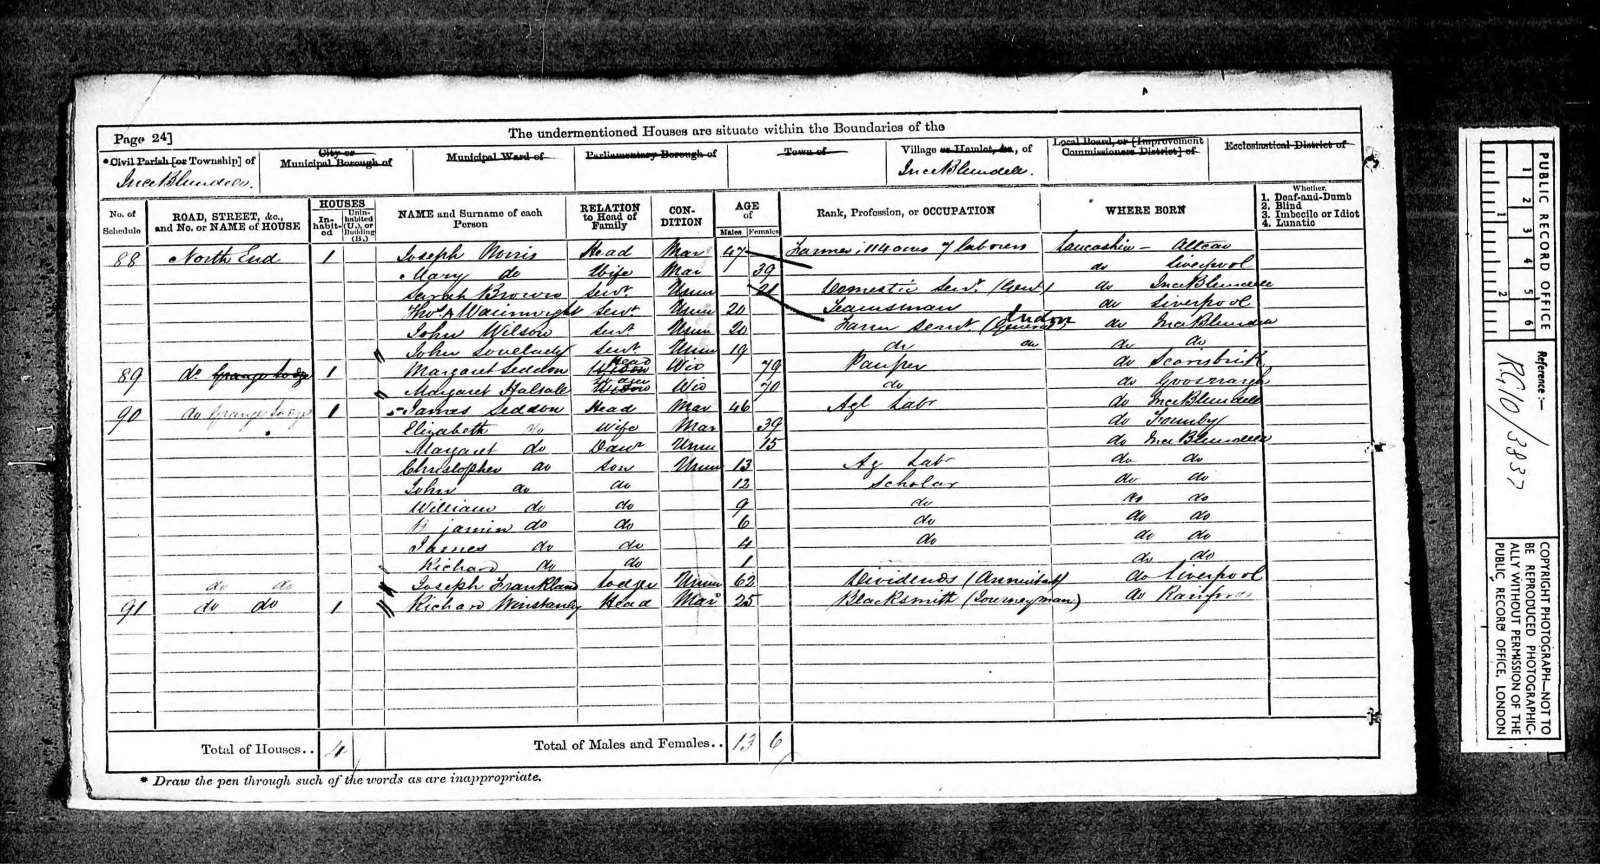 Page 24]
The undermentioned Houses are situate within the Boundaries of the
*Civil Parish [or Township] of
City or
Municipal Borough of
Municipal Ward of
Parliamentary Borough of
Town of
Village or Hamlet, &c., of
Local Board, or [Improvement
Commissioners District] of
Ecclesiastical District of
Ince Blundell.
Ince Blundell.
No. of
Schedule
ROAD, STREET, &c.,
and No. or NAME of HOUSE
HOUSES
In-
habit-
ed
Unin-
habited
(U.), or
Building
(B.)
NAME and Surname of each
Person
RELATION
to Head of
Family
CON-
DITION
AGE
of
Males Females
Rank, Profession, or OCCUPATION
WHERE BORN
Whether
1. Deaf-and-Dumb
2. Blind
3. Imbecile or Idiot
4. Lunatic
88 North End 1 Joseph Norris Head Mar 47 Farmer; 114 acres 7 laborers Lancashire - Altcar
Mary do Wife Mar 39 do Liverpool
Sarah Brown Servt Unm 21 Domestic Servt do Ince Blundell
Thos Wainwright Servt Unm 20 Teamsman do Liverpool
John Wilson Servt Unm 20 Farm Servt (General Indoor do Ince Blundell
John Lovelady Servt Unm 19 do do do do
89 do Grange Lodge 1 Margaret Seddon Widow Head Wid 79 Pauper do Scarisbrick
Margaret Halsall Widow Wid 70 do do Goosnargh
90 do Grange Lodge 1 James Seddon Head Mar 46 Agl Labr do Ince Blundell
Elizabeth do Wife Mar 39 do Formby
Margaret do Daur Unm 15 do Ince Blundell
Christopher do Son Unm 13 Ag Labr do do
John do do 12 Scholar do do
William do do 9 do do do
do do 6 do do do
James do do 4 do do do
Richard do do 1 do do
do do Joseph Frankland Lodger Unm 62 Dividends (Annuitant) do Liverpool
91 do do 1 Richard Winstanley Head Mar 25 Blacksmith (Journeyman) do
Total of Houses.. 4 Total of Males and Females.. 13 6
* Draw the pen through such of the words as are inappropriate.
PUBLIC RECORD OFFICE
1 2 3 4 5 6
1 2
Reference:-
RG10/3837
COPYRIGHT PHOTOGRAPH-NOT TO
BE REPRODUCED PHOTOGRAPHIC-
ALLY WITHOUT PERMISSION OF THE
PUBLIC RECORD OFFICE, LONDON